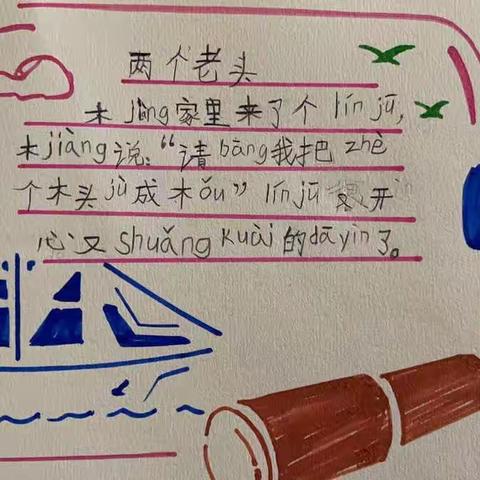 两个老头
木jiàng家里来了个línjū,
木jiàng说:“请bāng我把zhè
个木头jù成木ǒu”línjū很开
心又shuǎngkuài的dāyìn了。